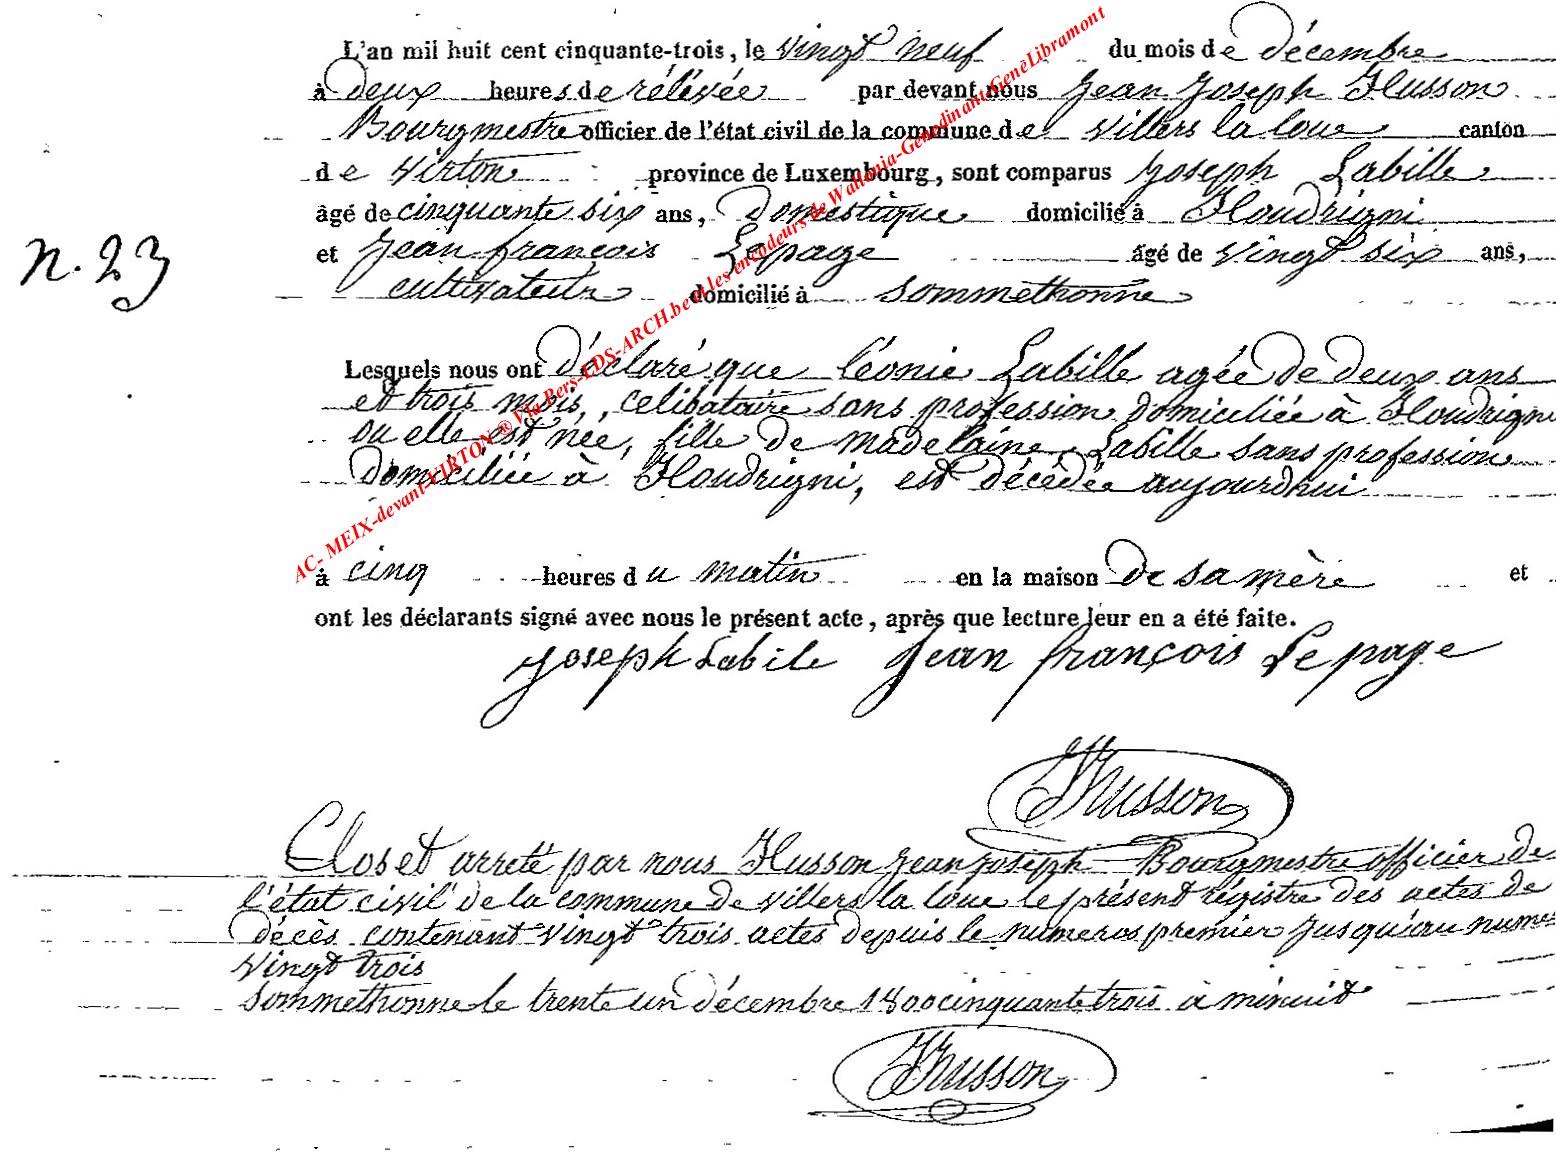 L'an mil huit cent cinquante-trois, le vingt neuf du mois de décembre
à deux heures de rélévée par devant nous Jean Joseph Husson
Bourgmestre officier de l'état civil de la commune de Villers la loue canton
de Virton province de Luxembourg, sont comparus Joseph Labille
âgé de cinquante six ans, Domestique domicilié à Houdrigni
et Jean françois Lepage âgé de vingt six ans,
n. 23
cultivateur domicilié à Sommethonne
Lesquels nous ont déclaré que léonie Labille agée de deux ans
et trois mois, celibataire sans profession domiciliée à Houdrigni
ou elle est née, fille de madelaine Labille sans profession
domiciliée à Houdrigni, est décédée aujourdhui
à cinq heures du matin en la maison de sa mère et
ont les déclarants signé avec nous le présent acte, après que lecture leur en a été faite.
Joseph Labile Jean françois Lepage
JHusson
Clos et arreté par nous Husson Jean Joseph Bourgmestre officier de
l'état civil de la commune de Villers la loue le présent régistre des actes de
décès contenant vingt trois actes depuis le numeros premier jusqu'au numes
vingt trois
Sommethonne le trente un décembre 1800 cinquante trois à minuit
JHusson
AC- MEIX-devant-VIRTON ® Via Pers-LDS-ARCH.be et les encodeurs de Wallonia-Genedinant-GeneLibramont